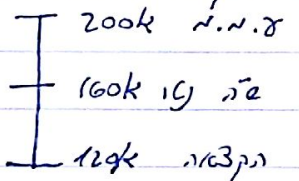 200k ע.מ.מ
160k שיה נקי
120k הקצאה